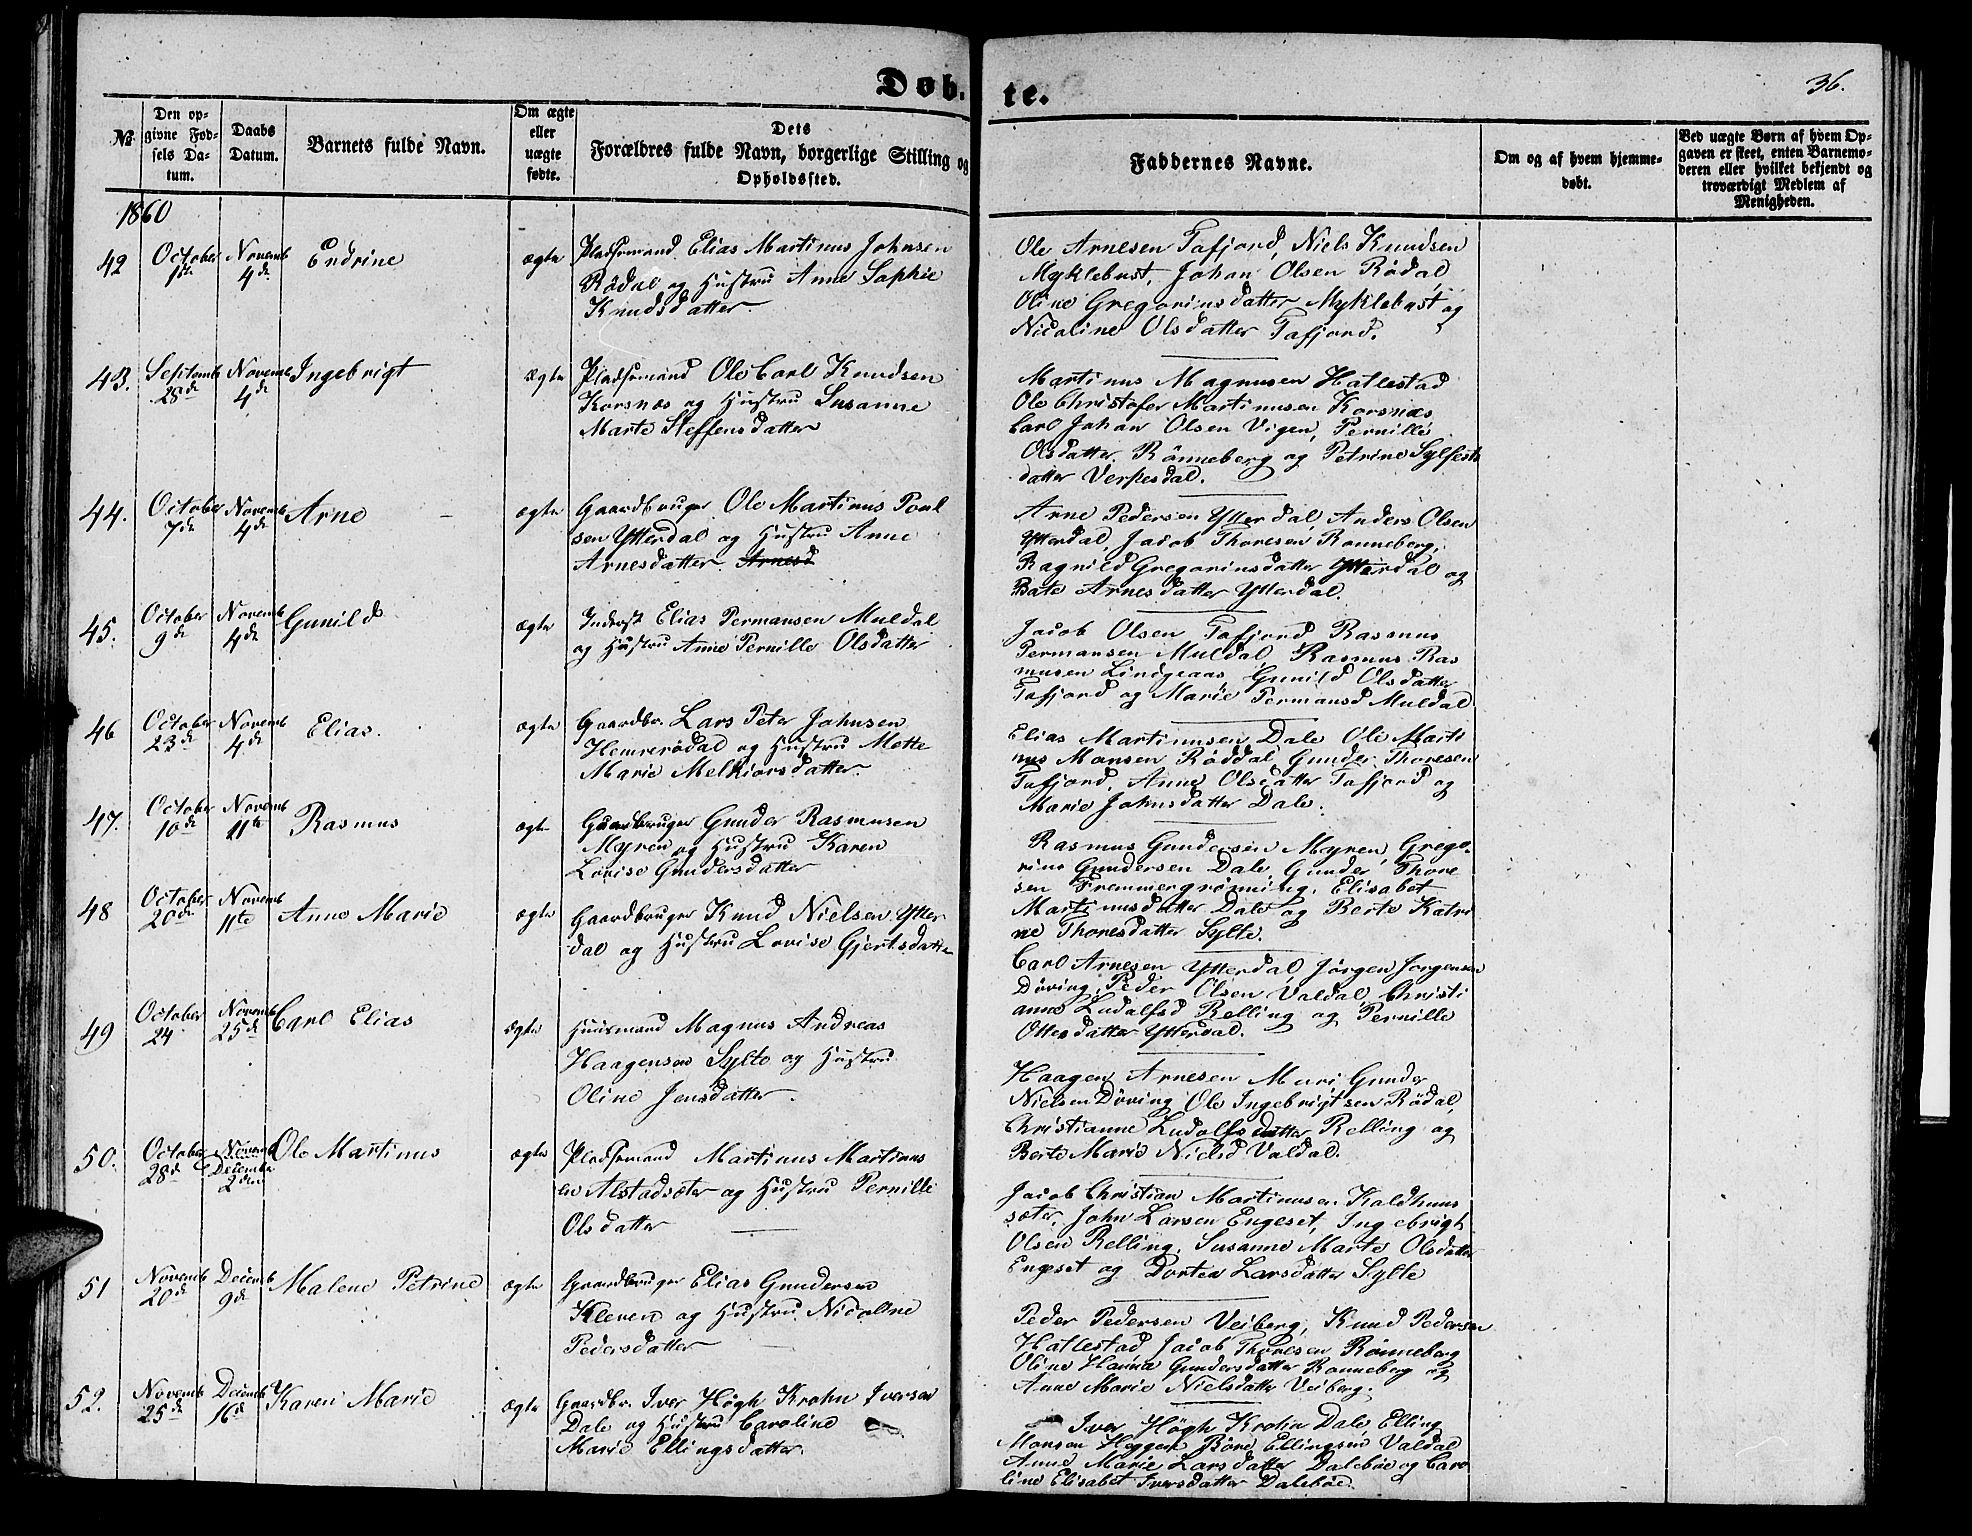 Døb-
te.
36.
№
Den op-
givne Fød-
sels Da-
tum.
Daabs
Datum.
Barnets fulde Navn.
Om ægte
eller
uægte
fødte.
Dets
Forældres fulde Navn, borgerlige Stilling og
Opholdssted.
Faddernes Navne.
Om og af hvem hjemme-
døbt.
Ved uægte Børn af hvem Op-
gaven er skeet, enten Barnemo-
deren eller hvilket bekjendt og
troværdigt Medlem af
Menigheden.
1860
42 October 1ste Novemb 4de Endrine ægte Pladsemand Elias Martinus Johnsen
Rødal og Hustru Anne Sophie
Knudsdatter.
Ole Arnesen Tafjord, Niels Knudsen
Myklebust, Johan Olsen Rødal,
Oline Gregoriusdatter Myklebust og
Nicoline Olsdatter Tafjord.
43. Septemb 28de Novemb 4de Ingebrigt ægte Pladsemand Ole Carl Knudsen
Korsnæs og Hustru Susanne
Marte Steffensdatter
Martinus Magnusen Hatlestad
Ole Christofer Martinusen Korsnæs
Carl Johan Olsen Vigen, Pernille
Olsdatter Rønneberg og Petrine Sylfest
datter Verpesdal.
44. October 7de Novemb 4de Arne ægte Gaardbruger Ole Martinus Poul
sen Ytterdal og Hustru Anne
Arnesdatter Arnesd
Arne Pedersen Ytterdal, Anders Olsen
Ytterdal, Jacob Thoresen Rønneberg,
Ragnild Gregoriusdatter Ytterdal og
Bate Arnesdatter Ytterdal.
45. October 9de Novemb 4de Gunild ægte Inderst Elias Permansen Muldal
og Hustru Anne Pernille Olsdatter
Jacob Olsen Tafjord Rasmus
Permansen Muldal, Rasmus Ras
musen Lindgeaas, Gunild Olsdatter
Tafjord og Marie Permansd Muldal
46 October 23de Novemb 4de Elias. ægte Gaardbr. Lars Peter Johnsen
Hemrerødal og Hustru Mette
Marie Melkiorsdatter.
Elias Martinusen Dale Ole Marti
nus Monsen Røddal, Gunder Thoresen
Tafjord, Anne Olsdatter Tafjord og
Marie Johnsdatter Dale.
47. October 10de Novemb 11te Rasmus ægte Gaardbruger Gunder Rasmusen
Myren og Hustru Karen
Lovise Gundersdatter
Rasmus Gundersen Myren, Grego-
rius Gundersen Dale, Gunder Thore
sen Fremmergrønning, Elisabet
Martinusdatter Dale og Berte Katri
ne Thoresdatter Sylte.
48 October 20de Novemb 11te Anne Marie ægte Gaardbruger Knud Nielsen Ytter
dal og Hustru Lovise Gjertsdatter
Carl Arnesen Ytterdal, Jørgen Jørgensen
Døving, Peder Olsen Valdal, Christi
anne Ludolfsd Relling og Pernille
Ottersdatter Ytterdal.
49 October 24 Novemb 25de Carl Elias ægte Huusmand Magnus Andreas
Haagensen Sylte og Hustru
Oline Jensdatter.
Haagen Arnesen Muri Gunder
Nielsen Døving Ole Ingebrigtsen Rødal,
Christianne Ludolfsdatter Relling og
Berte Marie Nielsd Valdal.
50. October 28de Novemb December 2den Ole Martinus ægte Pladsemand Martinus Martinus
en Alstadsæter og Hustru Pernille
Olsdatter
Jacob Christian Martinusen Kaldhuus
sæter, John Larsen Engeset, Ingebrigt
Olsen Relling, Susanne Marte Olsdatter
Engeset og Dortea Larsdatter Sylte
51 Novemb 20de Decemb 9de Malene Petrine ægte Gaardbruger Elias Gundersen
Kleven og Hustru Nicoline
Pedersdatter
Peder Pedersen Veiberg, Knud Pedersen
Hatlestad Jacob Thoresen Rønneberg
Oline Hanna Gundersdatter Rønneberg og
Anne Marie Nielsdatter Veiberg.
52. Novemb 25de Decemb 16de Karen Marie ægte Gaardbr. Iver Høgh Krohn Iversen
Dale og Hustru Caroline
Marie Ellingsdatter.
Iver Høgh Krohn Dale, Elling
Monsen Heggen, Børe Ellingsen Valdal
Anne Marie Larsdatter Dalebøe og Caro
line Elisabet Iversdatter Dalebøe.